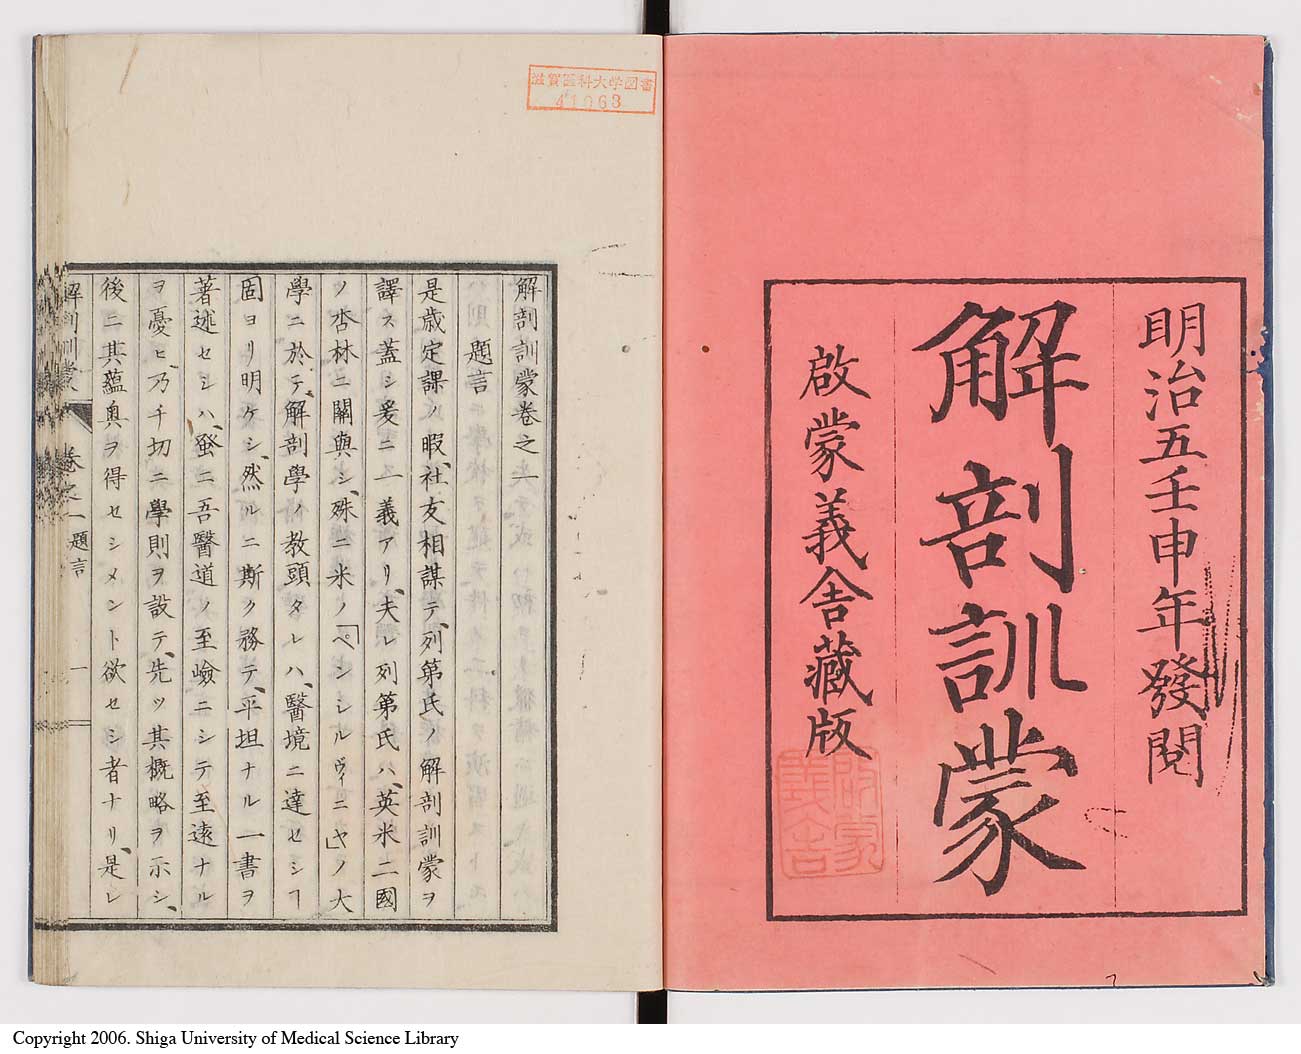 明治五壬申年發閲
解剖訓蒙
啟蒙義舎藏版
啟蒙
義舎
滋賀医科大学図書
41063
解剖訓蒙卷之一
題言
是歳定課ノ暇、社友相謀テ、列第氏ノ解剖訓蒙ヲ
譯ス蓋シ爰ニ一義アリ、夫レ列第氏ハ、英米二國
ノ杏林ニ關與シ、殊ニ米ノ「ペンシルヴィニヤ」ノ大
學ニ於テ、解剖學ノ教頭タレハ、醫境ニ達セシヿ
固ヨリ明ケシ、然ルニ斯ク務テ、平坦ナル一書ヲ
著述セシハ、蚤ニ吾醫道ノ至嶮ニシテ至遠ナル
ヲ憂ヒ、乃チ切ニ學則ヲ設テ、先ツ其概略ヲ示シ、
後ニ其蘊奥ヲ得セシメント欲セシ者ナリ、是レ
解剖訓蒙
卷之一 題言
一
Copyright 2006. Shiga University of Medical Science Library